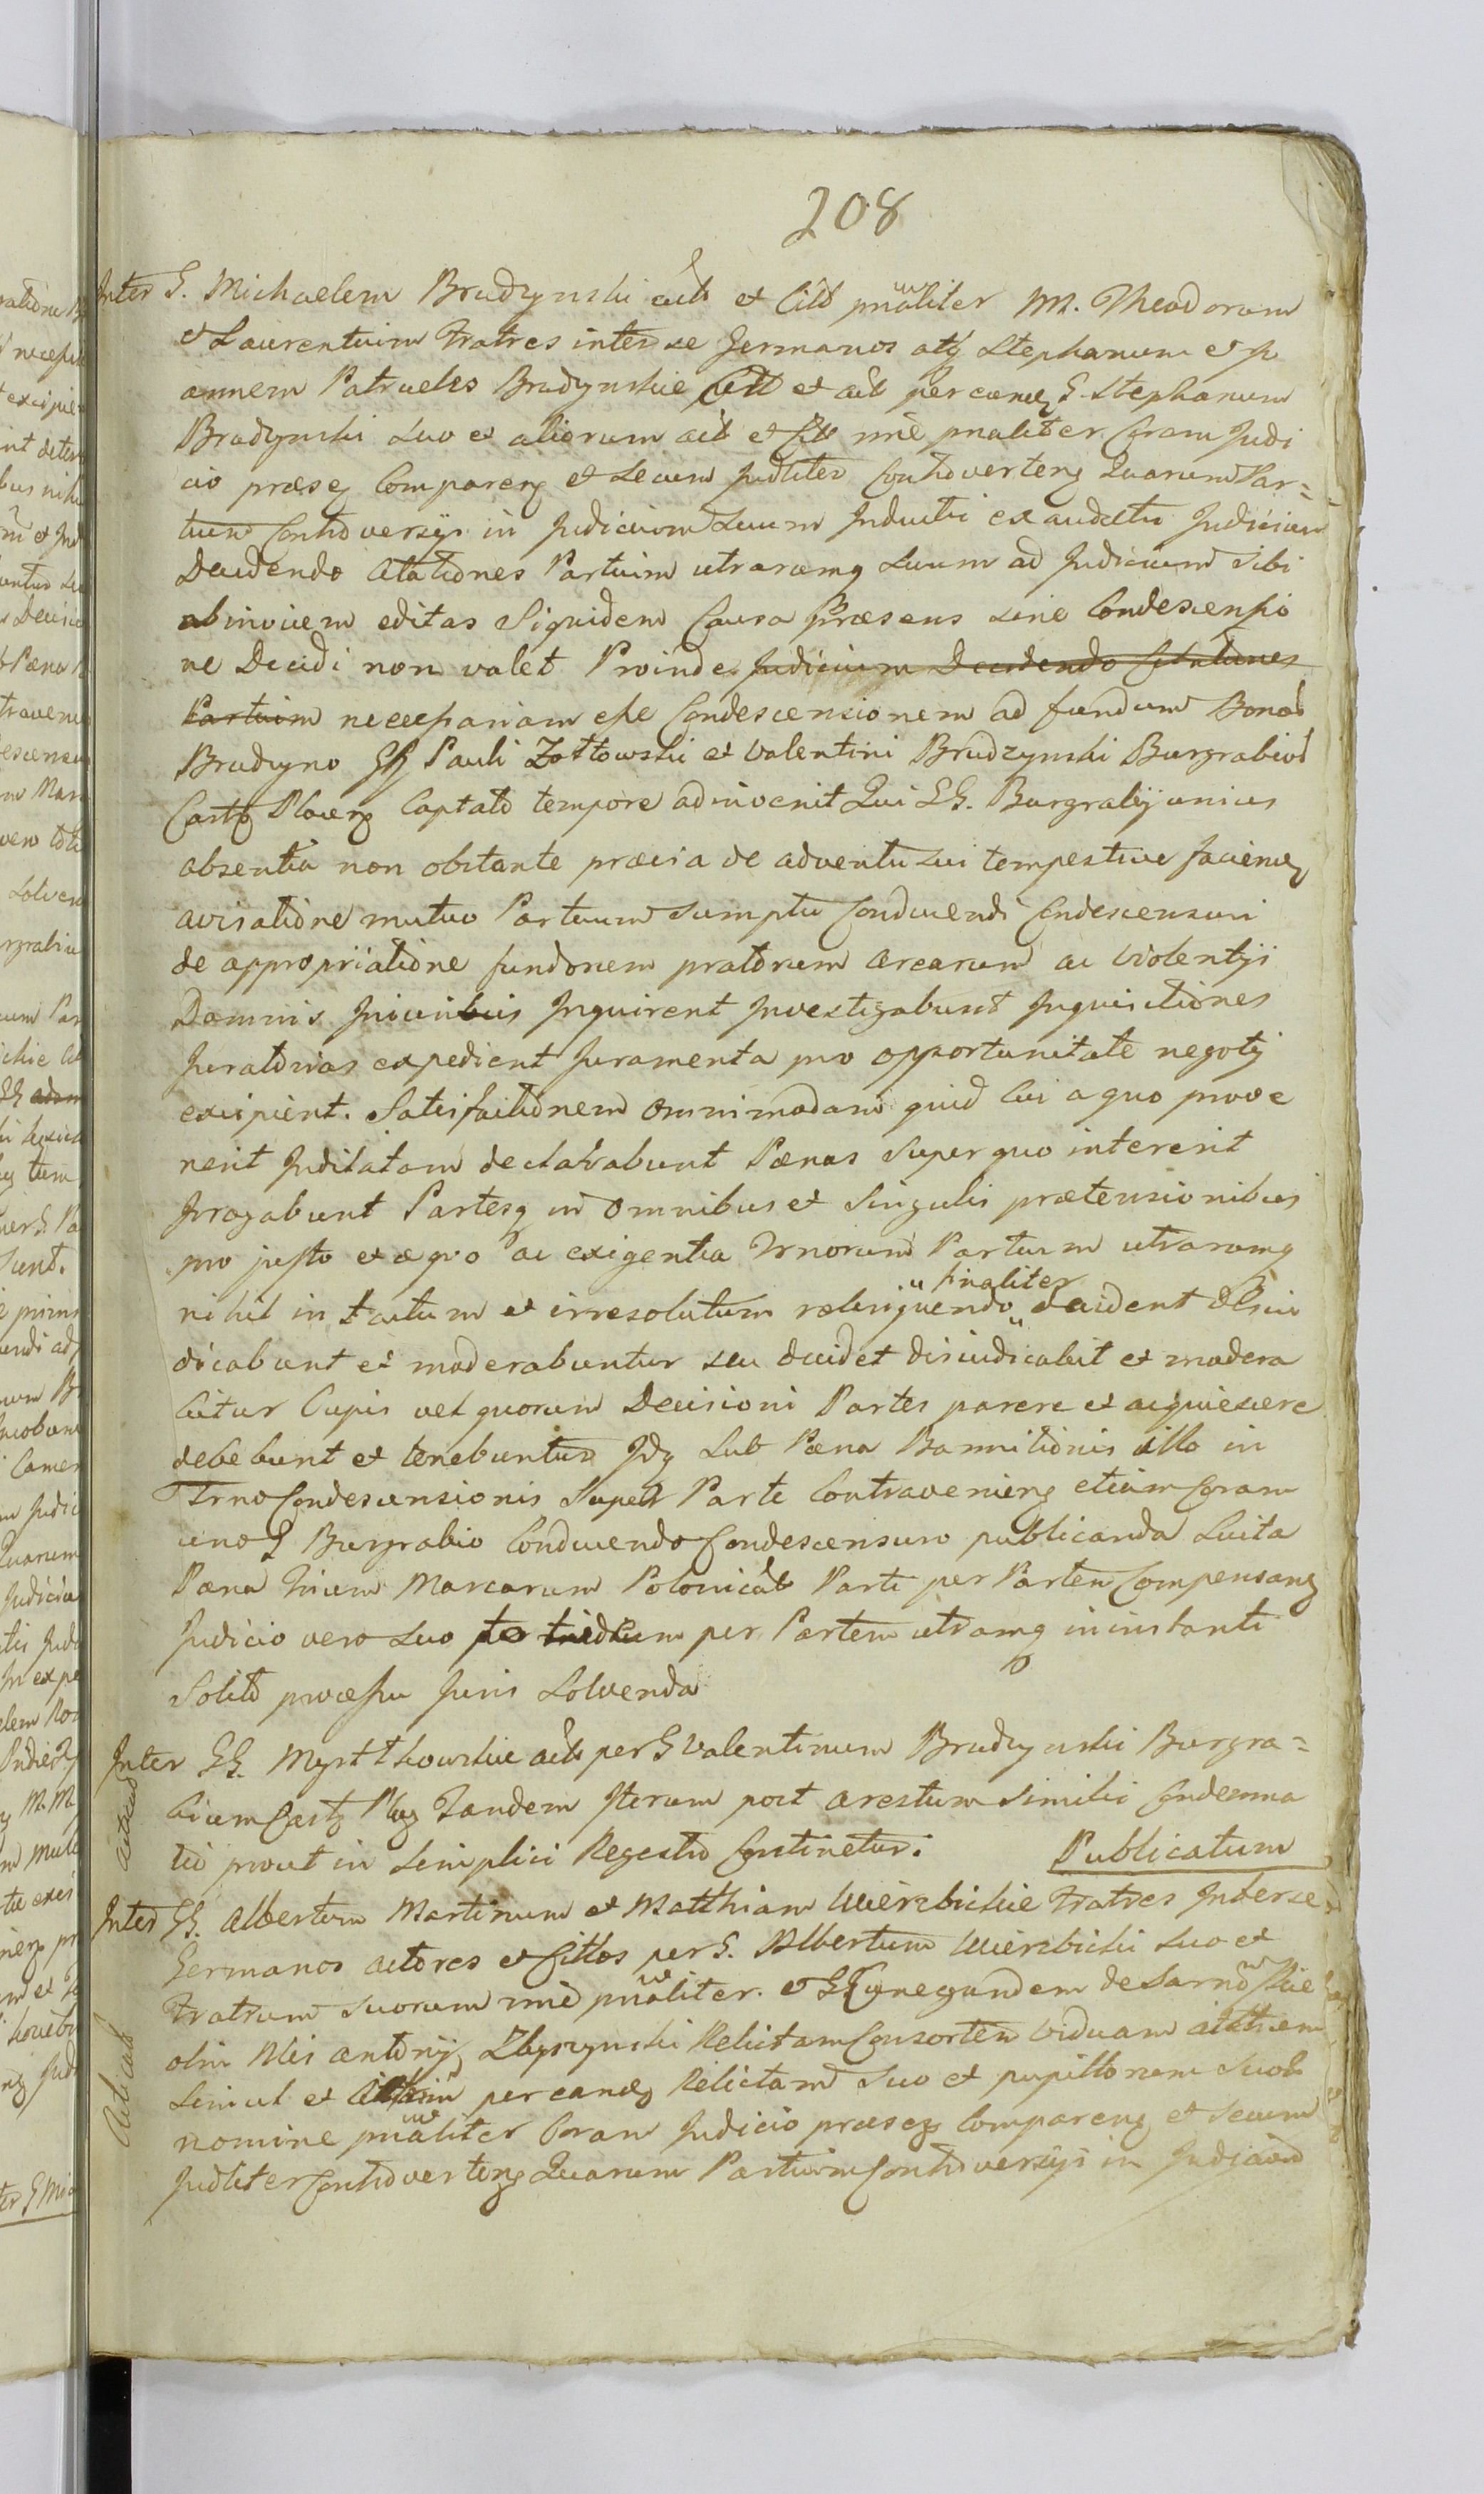 208
Inter G. Michaelem Brudzynski act et Citt pnāliter M. Theodorum
et Laurentium Fratres inter se Germanos atq Stephanum et Jo
annem Patrueles Brudzynskie Citt et act per eamq G. Stephanum
Brudzynski suo et aliorum act et Citt nnē pnaliter Coram Judi
cio præsen Comparen et secum Judliter Controverten Quarum Par=
tium Controversijs in Judicium suum Inductis exauditis Judicium
Decidendo Citationes Partium utrarumq suum ad Judicium sibi
ab invicem editas Siquidem Causa Præsens sine Condescensio
ne Decidi non valet Proinde Judicium Decidendo Citationes
Partium necessariam esse Condescensionem ad fundum Bonor
Brudzyno GG Pauli Zołtowski et Valentini Brudzynski Burgrabior
Castr Plocen Captato tempore adinvenit Qui GG. Burgrabij unius
absentia non obstante prævia de adventu sui tempestive facienda
avisatione mutuo Partium sumptu Conducendi Condescensuri
de appropriatione fundorum pratorum arearum ac violentiji
Damnis Injurijs Inquirent Investigabunt Inquisitiones
Juratorias expedient Juramenta pro opportunitate negotij
excipient. Satisfactionem omnimodam quid Cui a quo prove
nerit Judicatam declarabunt Pænas super quo intererit
Irrogabunt Partesq in omnibus et Singulis prætensionibus
pro justo et æquo ac exigentia Trnorum Partium utrarumq
nihil intactum et irresolutum relinquendo finaliter decident Disiu
dicabunt et moderabuntur seu decidet disiudicabit et modera
bitur Cujus vel quorum Decisioni Partes parere et acquiescere
debebunt et tenebuntur Idq sub Pæna Bannitionis illo in
Trno Condescensionis Super Parte Contravenien etiam Coram
uno G Burgrabio Conducendo Condescensuro publicanda Luita
Pæna trium Marcarum Polonical Parti per Partem Compensan
Judicio vero suo per Partem utramq in instanti
Solito processu Juris Solvenda
Inter GG. act per G Valentinum Brudzynski Burgra=
bium Castr Ploc Tandem Iterum post arestum simili Condemna
tio prout in simplici Regestro Continetur. Publicatum
Inter GG. Albertum Martinum et Matthiam Wierzbickie Fratres Inter se
Germanos actores et Cittos per G. Albertum Wierzbicki suo et
Fratrum suorum nnē pnāliter. et G Cunegundem de
olim Nlis Antonij Zbyszynski Relictam Consortem Viduam
simul et per eandq Relictam suo et pupillorum suor
nomine pnāliter Coram Judicio præsen Comparen et secum
Judliter Controverten Quarum Partium Controversijs in Judicium